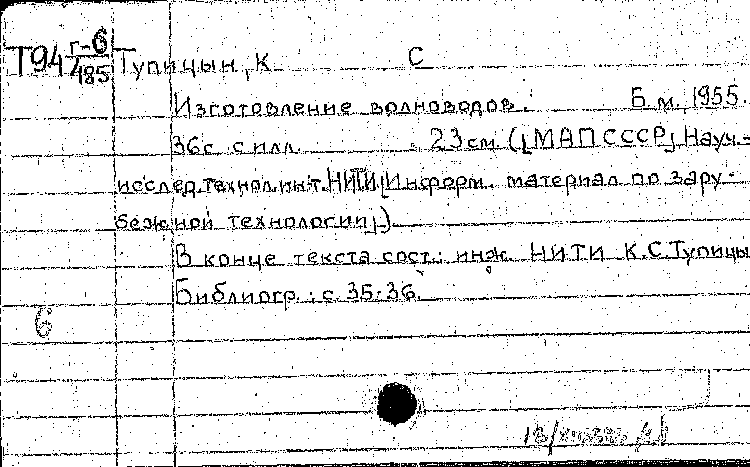 Т94 Г-6/485 Тупицын, К С
Изготовление волноводов. Б.м. 1955.
36с. с илл. 23см. ([МАПСССР] Науч.-
исслед. технол. ин-т. НИТИ. [Информ. материал по зару-
бежной технологии])
В конце текста сост.: инж. НИТИ К.С.Тупицы
Библиогр.: с. 35-36.
6